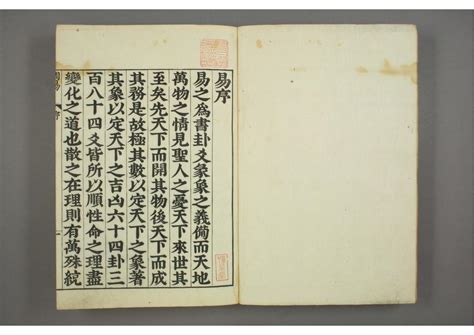 易序
易之為書卦爻彖象之義備而天地
萬物之情見聖人之憂天下來世其
至矣先天下而開其物後天下而成
其務是故極其數以定天下之象著
其象以定天下之吉凶六十四卦三
百八十四爻皆所以順性命之理盡
變化之道也散之在理則有萬殊統
易 序